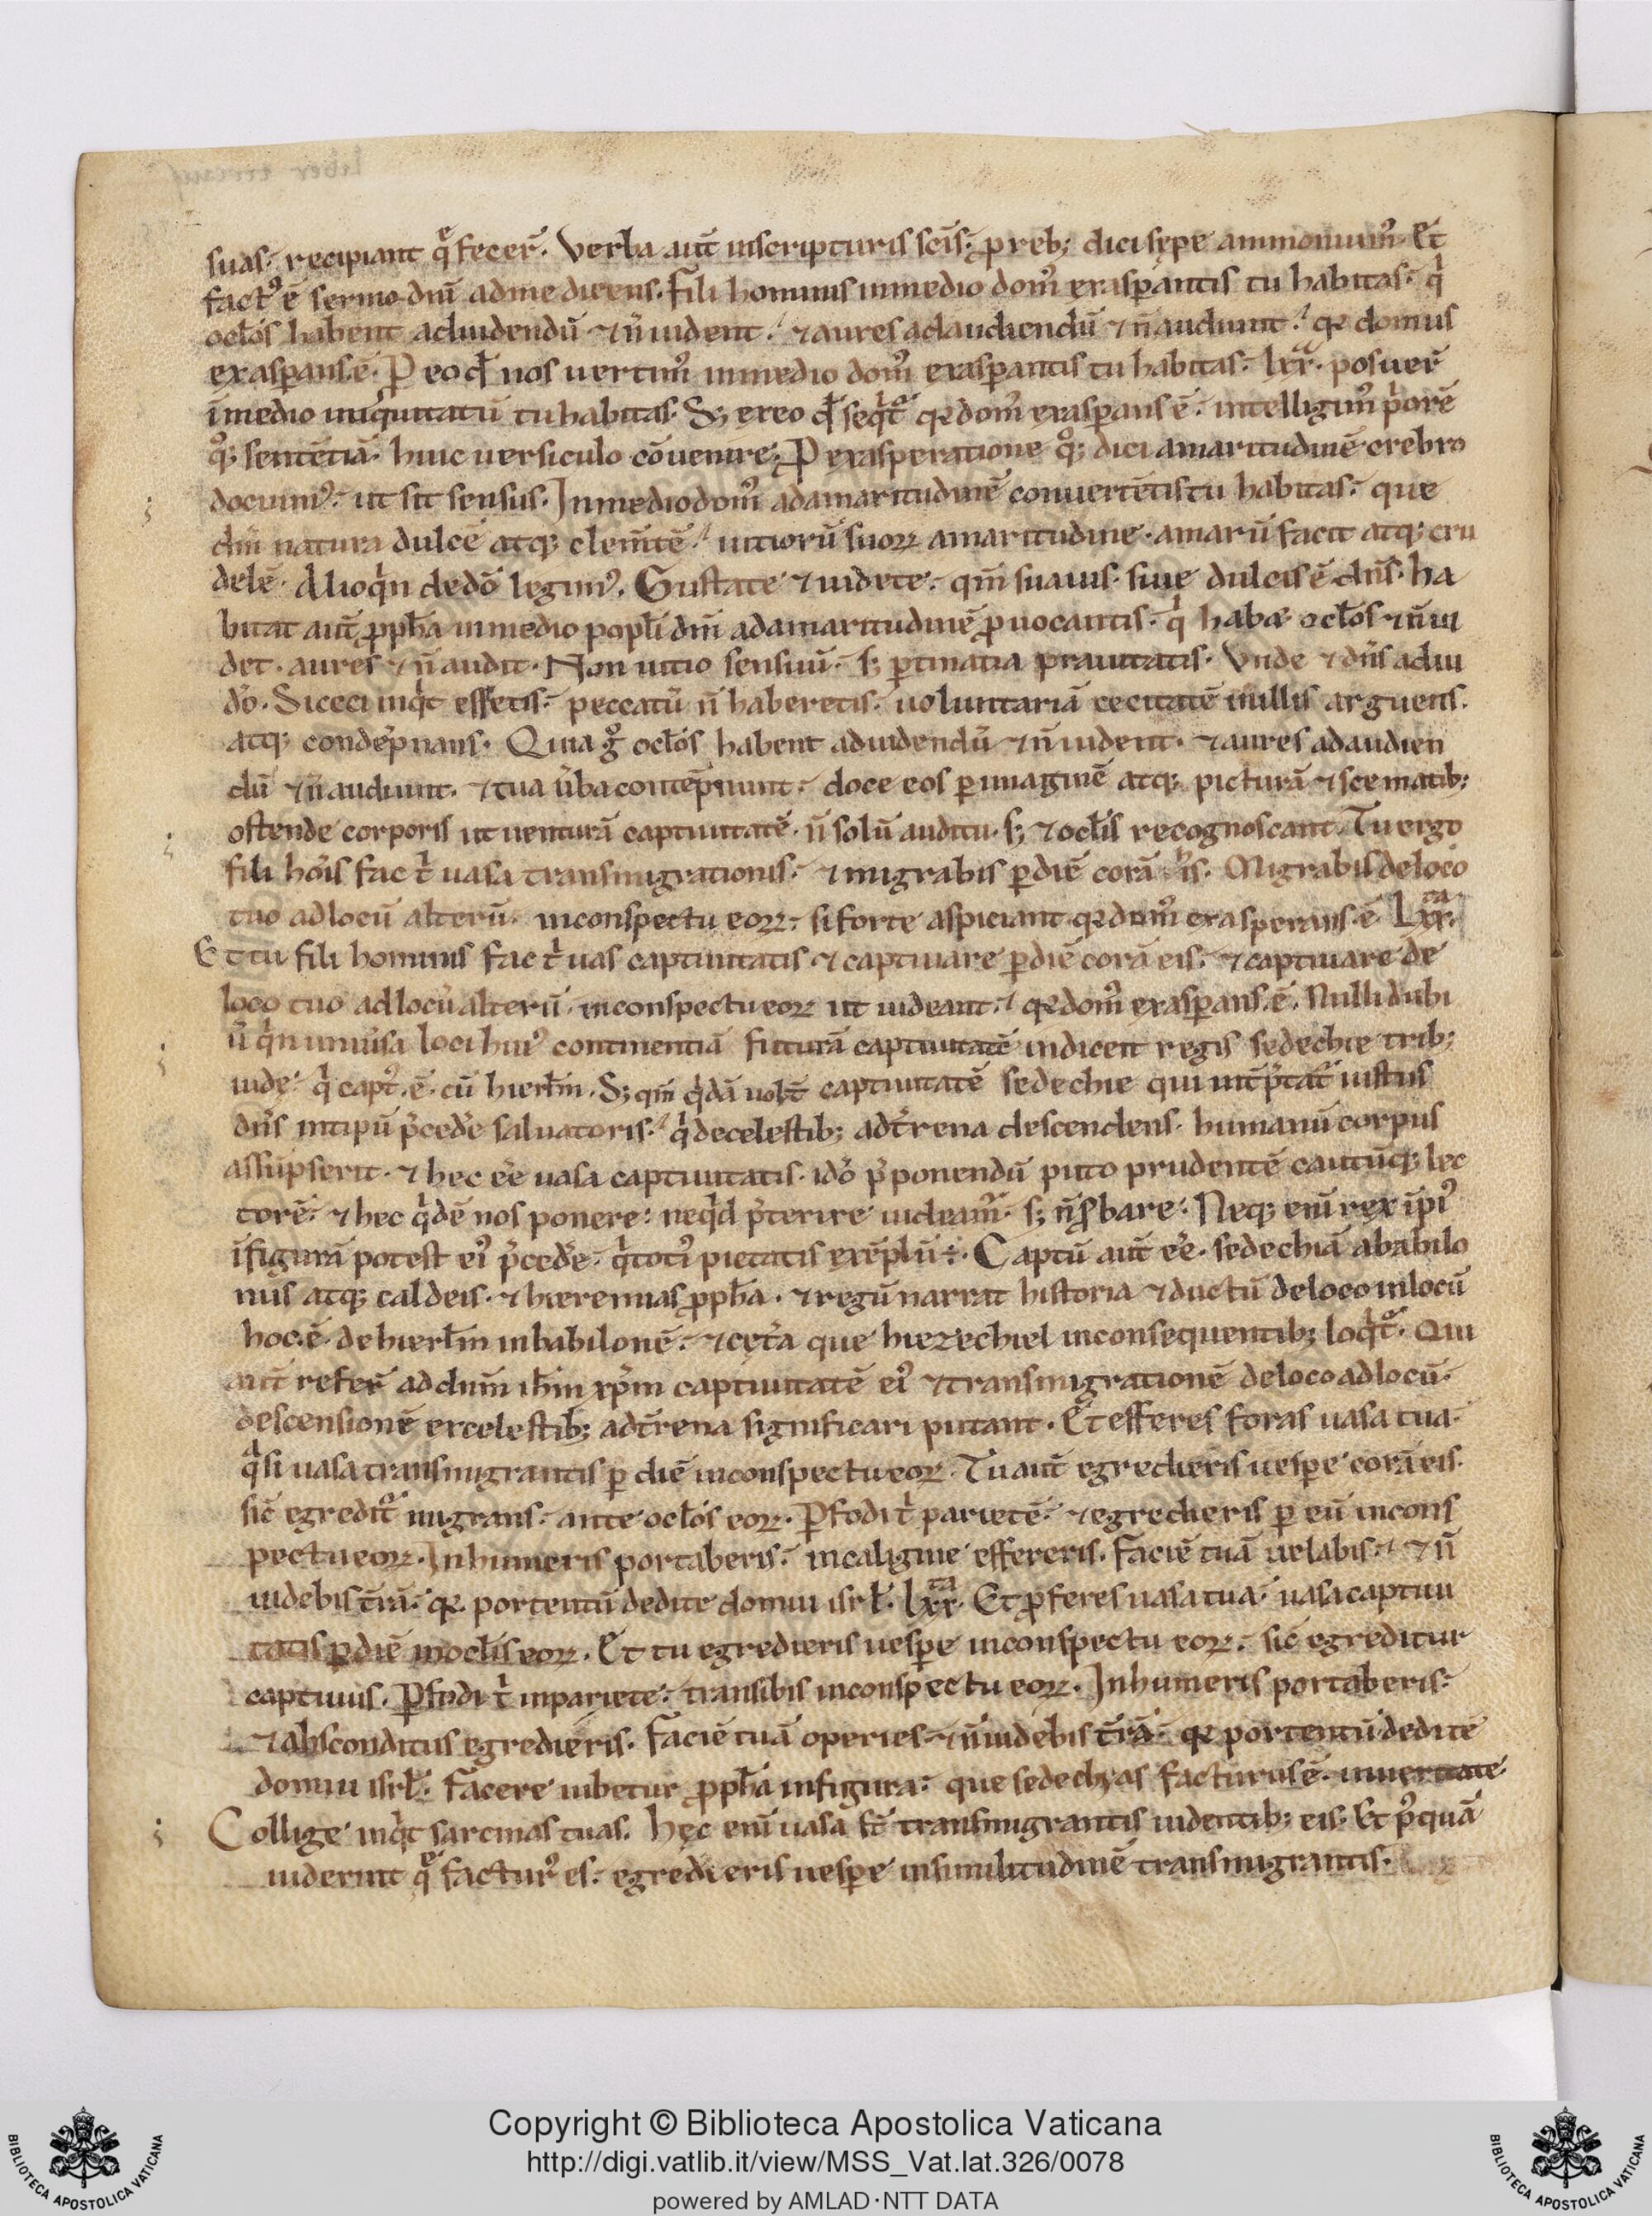 suas. recipiant q̄ fecer̄. Verba aut̄ inscripturis scīs. p reb; dici sępe ammonuim᷒. Et
fact᷒ ē sermo dn̄i adme dicens. Fili hominis inmedio dom᷒ exasꝑantis tu habitas. qͥ
ocl̄os habent aduidendū ⁊ n̄ uident. ⁊ aures adaudiendū ⁊ n̄ audiunt. qꝛ domus
exasꝑans ē. P eo qđ nos uertim᷒ inmedio dom᷒ exasꝑantis tu habitas. lxx. posuer̄
ī medio iniqͥtatū tu habitas. S; ex eo qđ seqͥt᷒ qꝛ dom᷒ exasꝑans ē. intelligim᷒ pͥorē
q᷒; sentētiā huic uersiculo cōuenire. P exasperatione q᷒; dici amaritudinē crebro
docuim᷒. ut sit sensus. Inmedio dom᷒ adamaritudinē conuertētis tu habitas. que
dn̄m natura dulcē atq; clem̄tē uitiorū suoꝝ amaritudine. amarū facit atq; cru
delē. Alioqͥn dedō legim᷒. Gustate ⁊ uidete. qm̄ suauis. siue dulcis ē dn̄s. ha
bitat aut̄ ꝓph̄a inmedio popl̄i dn̄m adamaritudinē ꝓuocantis. qͥ habę ocl̄os ⁊ n̄ ui
det. aures ⁊ n̄ audit. Non uitio sensuū. s; ꝑtinatia prauitatis. Vnde ⁊ dn̄s adiu
dō. Si ceci inqͥt essetis. peccatū n̄ haberetis. uoluntariā cecitatē inillis arguens.
atq; condēpnans. Quia g° ocl̄os habent aduidendū ⁊ n̄ uident. ⁊ aures adaudien
dū ⁊ n̄ audiunt. ⁊ tua ūba contēpnunt. doce eos ꝑ imaginē atq; picturā ⁊ scematib;
ostende corporis ut uenturā captiuitatē. n̄ solū auditu. s; ⁊ ocl̄is recognoscant. Tu ergo
fili hōis fac tͥ uasa transmigrationis. ⁊ migrabis ꝑ diē corā is. Migrabis deloco
tuo adlocū alterū. inconspectu eoꝝ. si forte aspiciant qꝛ dom᷒ exasperans ē. Lxx.
Et tu fili hominis fac tͥ uas captiuitatis ⁊ captiuare ꝑ diē corā eis. ⁊ captiuare de
loco tuo adlocū alterū inconspectu eoꝝ ut uideant. qꝛ dom᷒ exasꝑans ē. Nulli dubi
ū qͥn uniūsa loci hui᷒ continentiā futurā captiuitatē indicent regis sedechie trib;
iudę. qͥ capt᷒. ē. cū hierl̄m. S; qm̄ qͥdā uol̄t captiuitatē sedechie qui int̄pͥtat᷒ iustus
dn̄s intipū p̄cedēe saluatoris. qͥ decelestib; adt̄rena descendens. humanū corpus
assūpserit. ⁊ hec ēe uasa captiuitatis. idō p̄ponendū puto prudentē cautūq; lec
torē. ⁊ hec qͥdē nos ponere. neqͥd p̄terire uideam᷒. s; n̄ ꝓbare. Neq; enī rex īpi᷒
ī figurā potest ei᷒ p̄cedēe. qͥ toti᷒ pietatis exēplū ÷. Captū aut̄ ēe. sedechiā ababilo
niis atq; caldeis. ⁊ hieremias ꝓph̄a. ⁊ regū narrat historia ⁊ ductū deloco inlocū
hoc. ē. dehierl̄m inbabilonē. ⁊ cęt̄a que hiezechiel inconsequentib; loqͥt᷒. Qui
aut̄ refer̄ ad dn̄m ih̄m xp̄m captiuitatē ei᷒ ⁊ transmigrationē deloco adlocū.
descensionē excelestib; adt̄rena significari putant. Et efferes foras uasa tua.
qͣsi uasa transmigrantis ꝑ diē inconspectu eoꝝ. Tu aut̄ egredieris uesꝑe corā eis.
sic̄ egredit᷒ migrans. ante ocl̄os eoꝝ. Ꝑfodi tͥ parietē. ⁊ egredieris ꝑ eū incons
pectu eoꝝ. Inhumeris portaberis. incaligine effereris. Faciē tuā uelabis. ⁊ n̄
uidebis t̄rā. qꝛ portentū dedi te domui isrl̄. lxx. Et ꝓferes uasa tua. uasa captiui
tatis ꝑ diē inocl̄is eoꝝ. Et tu egredieris uesꝑe inconspectu eoꝝ. sic̄ egreditur
captiuus. Ꝑfodi tͥ inpariete. transibis inconspectu eoꝝ. Inhumeris portaberis.
⁊ absconditus egredieris. Faciē tuā operies ⁊ n̄ uidebis t̄rā. qꝛ portentū dedi te
domui isrl̄. Facere iubetur ꝓph̄a infigura. que sedechyas facturus ē. inueritate
Collige inqͥt sarcinas tuas. hęc enī uasa st̄ transmigrantis uidentib; eis. Et p᷒quā
uiderint q̄ factur᷒ es. egredieris uesꝑe insimilitudinē transmigrantis.
Copyright © Biblioteca Apostolica Vaticana
http://digi.vatlib.it/view/MSS_Vat.lat.326/0078
powered by AMLAD·NTT DATA
BIBLIOTECA APOSTOLICA VATICANA
BIBLIOTECA APOSTOLICA VATICANA